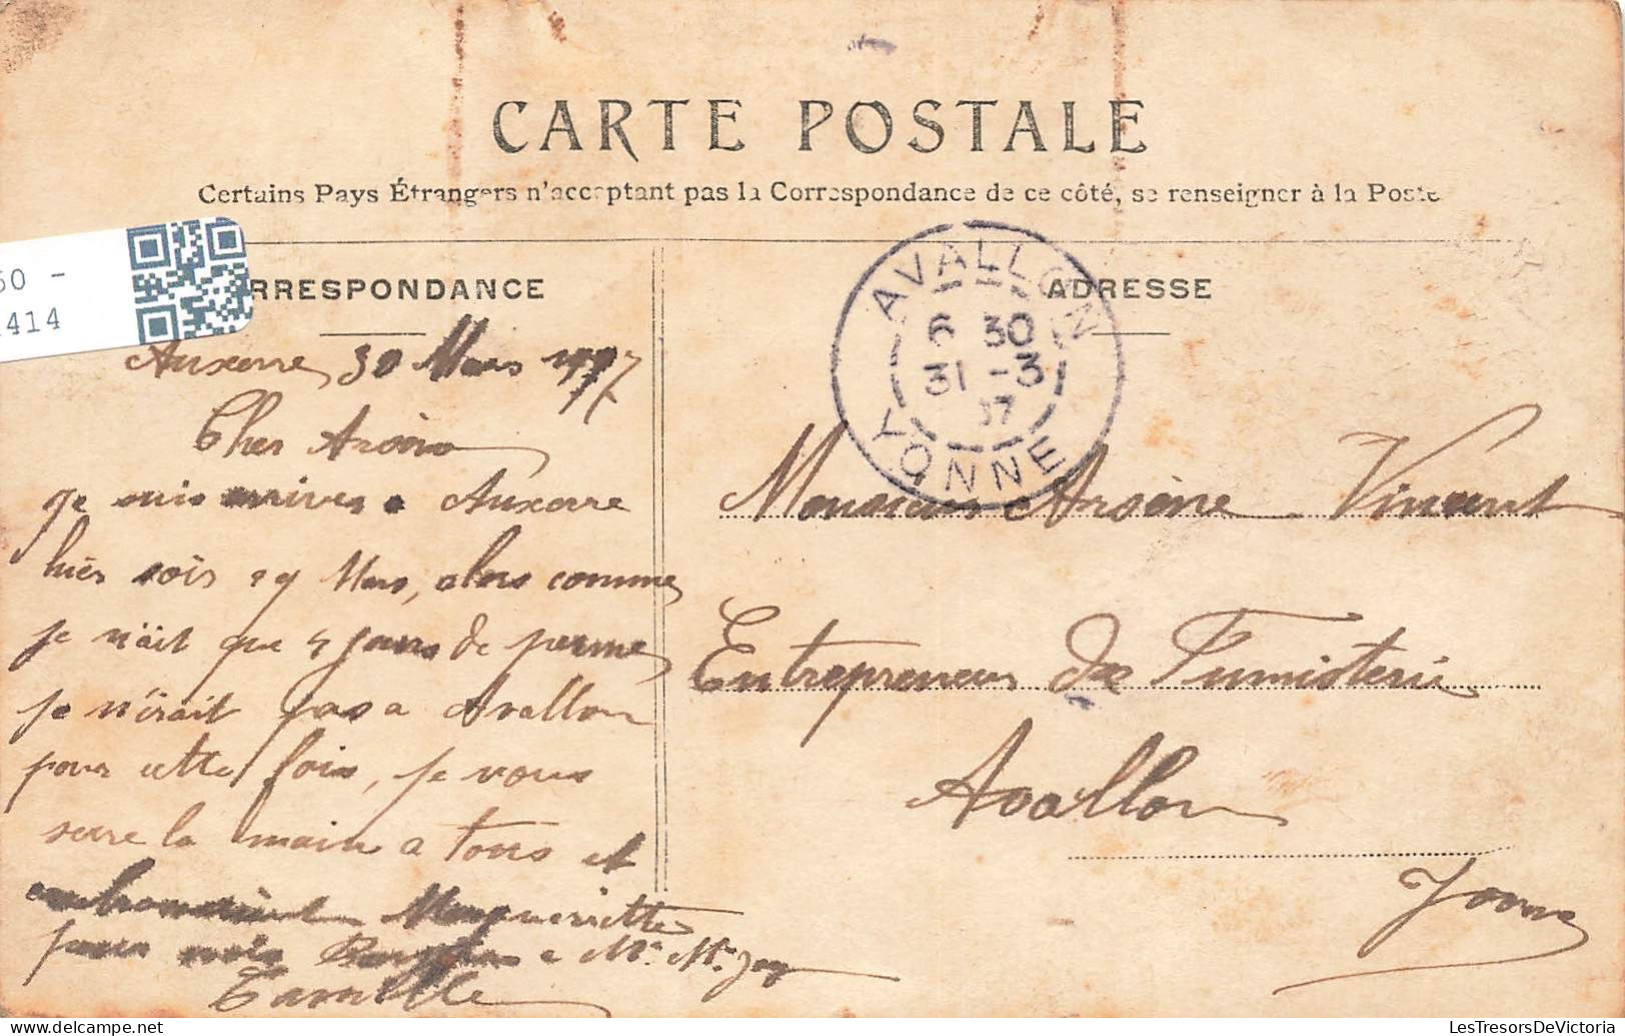 CARTE POSTALE
Certains Pays Étrangers n'acceptant pas la Correspondance de ce côté, se renseigner à la Poste
60 -
414
RRESPONDANCE
ADRESSE
AVALLON
6 30
31 -3
07
YONNE
Auxerre, 30 Mars 1907
Cher Arsène
Je suis arrives a Auxerre
hier soir 29 Mars, alors comme
je n'ait que 4 jours de perme
je n'irait pas a Avallon
pour cette fois, je vous
serre la main a tous et
Margueritte
pour moi a Mr. Mme. Joy
Camille
Monsieur Arsène Vincent
Entrepreneur de Fumisterie
Avallon
Yonne
LesTresorsDeVictoria